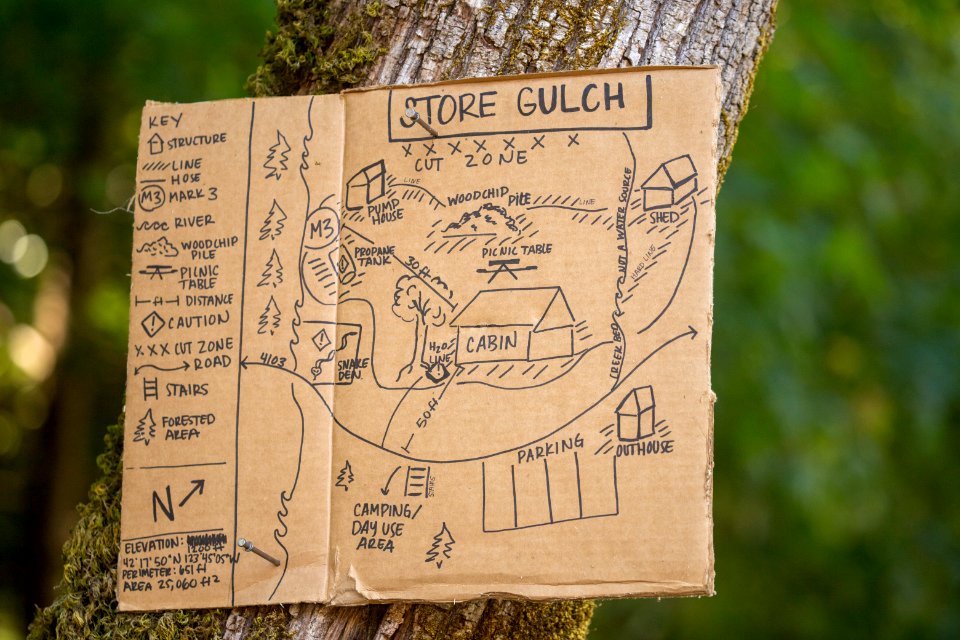 STORE GULCH
KEY
STRUCTURE
LINE
HOSE
M3 MARK 3
RIVER
WOODCHIP
PILE
PICNIC
TABLE
DISTANCE
CAUTION
XXX CUT ZONE
ROAD
STAIRS
FORESTED
AREA
N
ELEVATION:
1200 ft
42°17'50"N 123°45'05"W
PERIMETER: 651 ft
AREA 25,060 FT2
X X X X X X X
CUT ZONE
PUMP
HOUSE
LINE
WOODCHIP PILE
LINE
SHED
M3
PROPANE
TANK
30 ft
PICNIC TABLE
NOT A WATER SOURCE
HARD LINE
CREEK BED
4103
SNAKE
DEN
H2O
LINE
CABIN
50 ft
PARKING
OUTHOUSE
STAIRS
CAMPING/
DAY USE
AREA